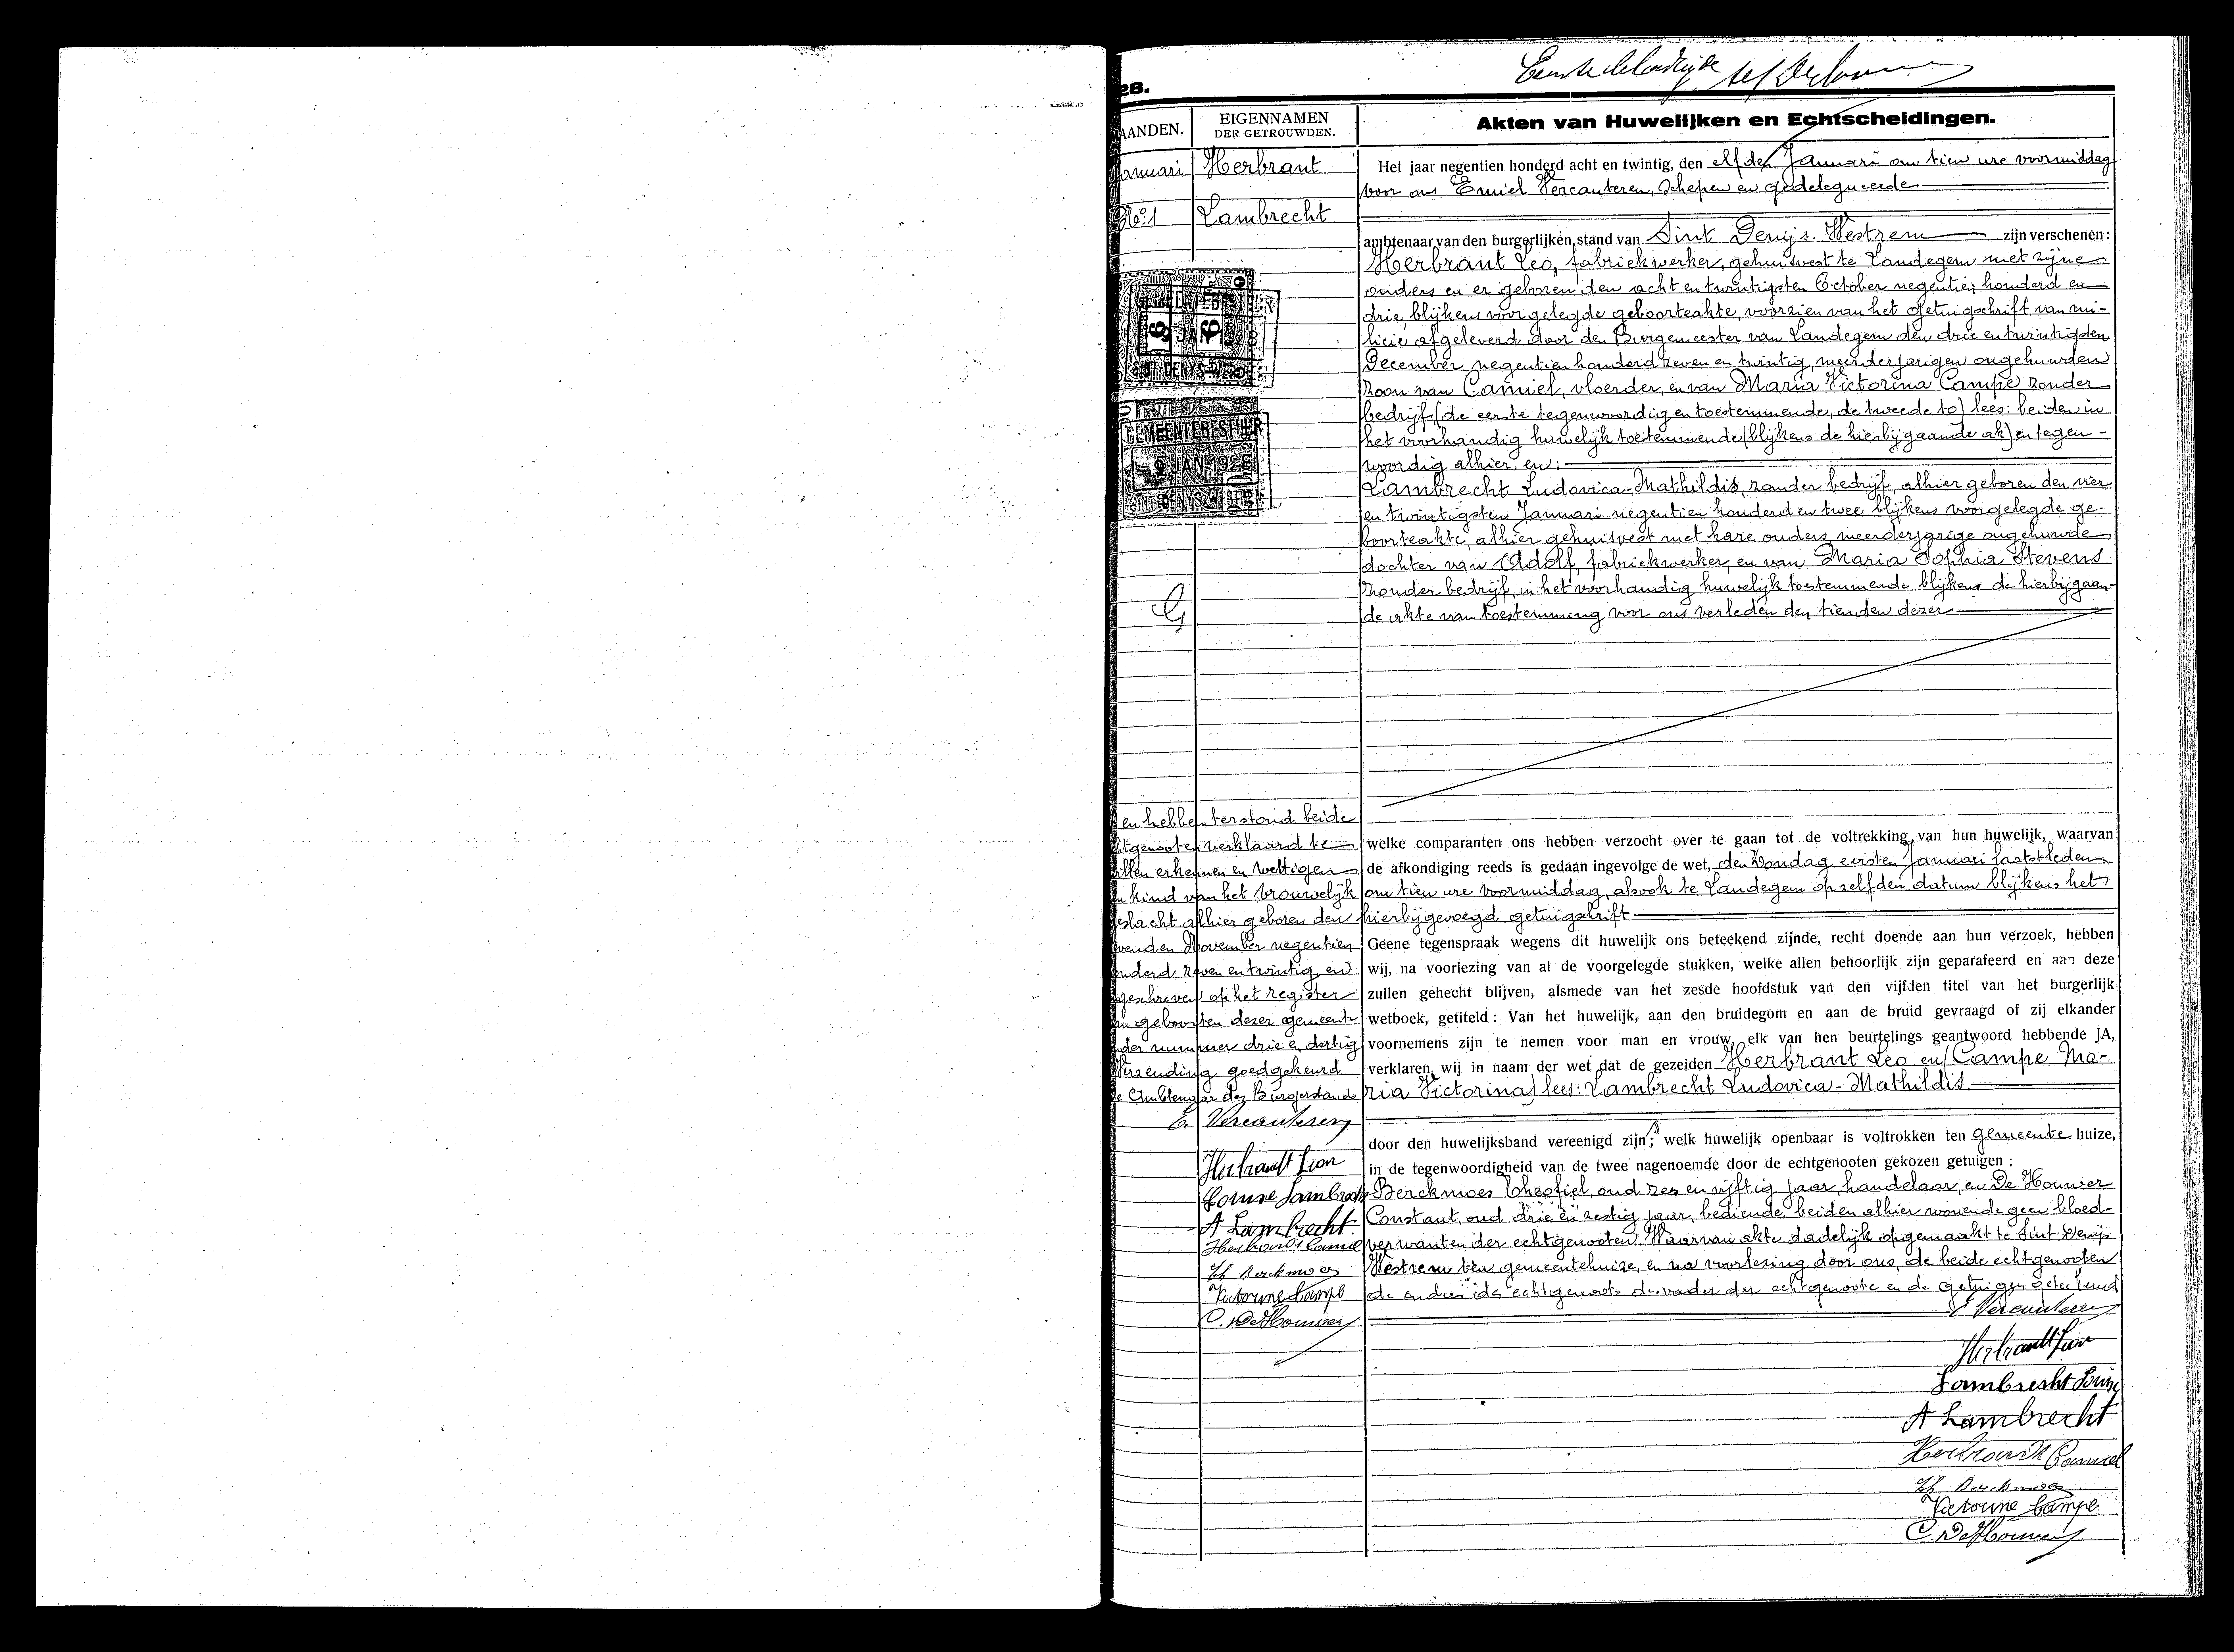 Eerste bladzijde
28.
AANDEN.
EIGENNAMEN
DER GETROUWDEN.
Akten van Huwelijken en Echtscheidingen.
Januari
Herbrant
No 1
Lambrecht
GEMEENTEBESTUUR
6 JAN 1928
SINT DENYS-WESTREM
GEMEENTEBESTUUR
JAN 1928
SINT DENYS-WESTREM
Het jaar negentien honderd acht en twintig, den elfden Januari om tien ure voormiddag
voor ons Emiel Vercauteren, Schepen en gedelegueerde
ambtenaar van den burgerlijken stand van Sint Denijs Westrem zijn verschenen:
Herbrant Leo, fabriekwerker, gehuisvest te Landegem met zijne
ouders en er geboren den acht en twintigsten October negentien honderd en
drie, blijkens voorgelegde geboorteakte, voorzien van het getuigschrift van mi-
licie afgeleverd door den Burgemeester van Landegem den drie en twintigsten
December negentien honderd zeven en twintig, meerderjarigen ongehuwden
zoon van Camiel, vloerder, en van Maria Victorina Campe, zonder
bedrijf (de eerste tegenwoordig en toestemmende, de tweede to) lees: beiden in
het voorhandig huwelijk toestemmende (blijkens de hierbijgaande ak) en tegen-
woordig alhier en:
Lambrecht Ludovica-Mathildis, zonder bedrijf, alhier geboren den vier
en twintigsten Januari negentien honderd en twee blijkens voorgelegde ge-
boorteakte, alhier gehuisvest met hare ouders, meerderjarige ongehuwde
dochter van Adolf, fabriekwerker, en van Maria Sophia Stevens
zonder bedrijf, in het voorhandig huwelijk toestemmende blijkens de hierbijgaan-
de akte van toestemming voor ons verleden den tienden dezer
en hebben terstond beide
htgenooten verklaard te
illen erkennen en wettigen
n kind van het vrouwelijk
geslacht alhier geboren den
venden November negentien
onderd zeven en twintig, en
geschreven op het register
an geboorten dezer gemeente
nder nummer drie en dertig
Verzending goedgekeurd
e Ambtenaar des Burgerstands
E. Vercauteren
Herbrandt Leon
Louise Lambrecht
A Lambrecht
Herbrandt Camiel
Th Berckmoes
Victorine Campe
C. De Houwer
welke comparanten ons hebben verzocht over te gaan tot de voltrekking van hun huwelijk, waarvan
de afkondiging reeds is gedaan ingevolge de wet, den Zondag eersten Januari laatstleden
om tien ure voormiddag, alsook te Landegem op zelfden datum blijkens het
hierbijgevoegd getuigschrift
Geene tegenspraak wegens dit huwelijk ons beteekend zijnde, recht doende aan hun verzoek, hebben
wij, na voorlezing van al de voorgelegde stukken, welke allen behoorlijk zijn geparafeerd en aan deze
zullen gehecht blijven, alsmede van het zesde hoofdstuk van den vijfden titel van het burgerlijk
wetboek, getiteld: Van het huwelijk, aan den bruidegom en aan de bruid gevraagd of zij elkander
voornemens zijn te nemen voor man en vrouw, elk van hen beurtelings geantwoord hebbende JA,
verklaren wij in naam der wet dat de gezeiden Herbrant Leo en (Campe Ma-
ria Victorina) lees: Lambrecht Ludovica-Mathildis.
door den huwelijksband vereenigd zijn; welk huwelijk openbaar is voltrokken ten gemeente huize,
in de tegenwoordigheid van de twee nagenoemde door de echtgenooten gekozen getuigen:
Berckmoes Theofiel, oud zes en vijftig jaar, handelaar, en De Houwer
Constant, oud drie en zestig jaar, bediende, beiden alhier wonende geen bloed-
verwanten der echtgenooten. Waarvan akte dadelijk opgemaakt te Sint Denijs
Westrem ten gemeentehuize, en na voorlezing door ons, de beide echtgenooten
de ouders des echtgenoots de vader der echtgenoote en de getuigen geteekend
E Vercauteren
Herbrandt Leon
Lambrecht Louise
A Lambrecht
Herbrandt Camiel
Th Berckmoes
Victorine Campe
C. De Houwer